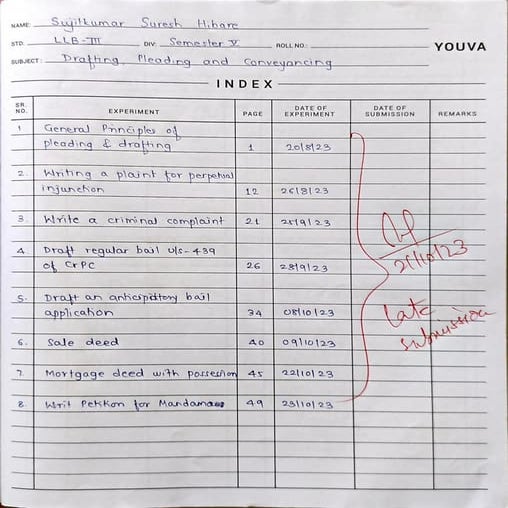 NAME: Sujitkumar Suresh Hihare
STD.: LLB-III DIV: Semester V ROLL NO.:
YOUVA
SUBJECT: Drafting, Pleading and Conveyancing
INDEX
SR. NO. EXPERIMENT PAGE DATE OF EXPERIMENT DATE OF SUBMISSION REMARKS
1 General Principles of
pleading & drafting 1 20/8/23
2. Writing a plaint for perpetual
injunction 12 26/8/23
3. Write a criminal complaint 21 25/9/23
4 Draft regular bail u/s-439
of CrPC 26 28/9/23
21/10/23
5. Draft an anticipatory bail
application 34 08/10/23
Late
submission
6. Sale deed 40 09/10/23
7. Mortgage deed with possession 45 22/10/23
8. Writ Petition for Mandamas 49 23/10/23